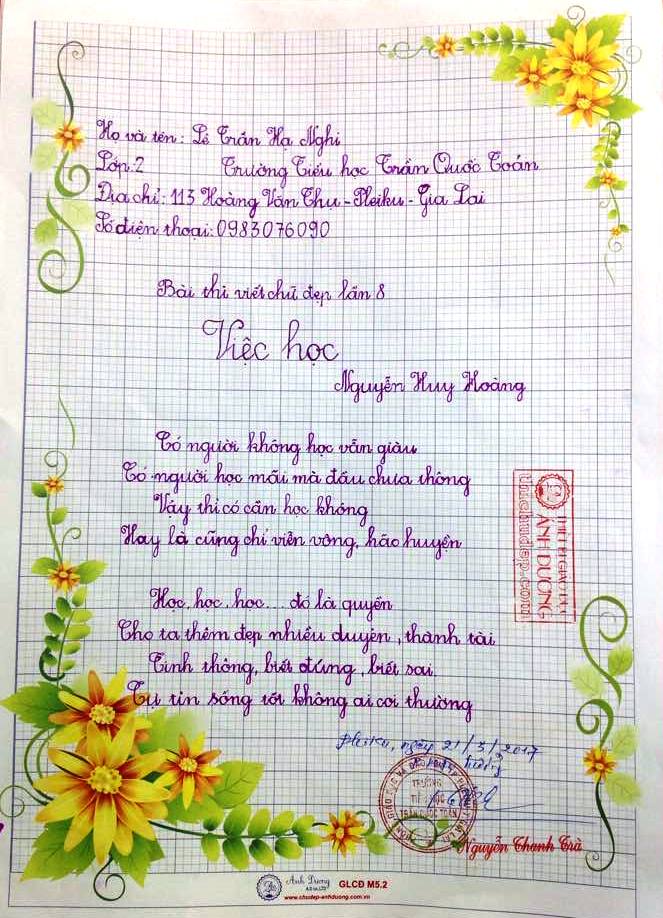 Họ và tên: Lê Trần Hạ Nghi
Lớp: 2 Trường Tiểu học Trần Quốc Toản
Địa chỉ: 113 Hoàng Văn Thụ - Pleiku - Gia Lai
Số điện thoại: 0983076090
Bài thi viết chữ đẹp lần 8
Việc học
Nguyễn Huy Hoàng
Có người không học vẫn giàu
Có người học mãi mà đầu chưa thông
Vậy thì có cần học không
Hay là cũng chỉ viển vông, hão huyền
Học, học, học... đó là quyền
Cho ta thêm đẹp nhiều duyên, thành tài
Tinh thông, biết đúng, biết sai
Tự tin sống tốt không ai coi thường
ÁNH DƯƠNG
Pleiku, ngày 21/3/2017
TRƯỜNG
TIỂU HỌC
TRẦN QUỐC TOẢN
Nguyễn Thanh Trà
Ánh Dương
GLCĐ M5.2
www.chudep-anhduong.com.vn